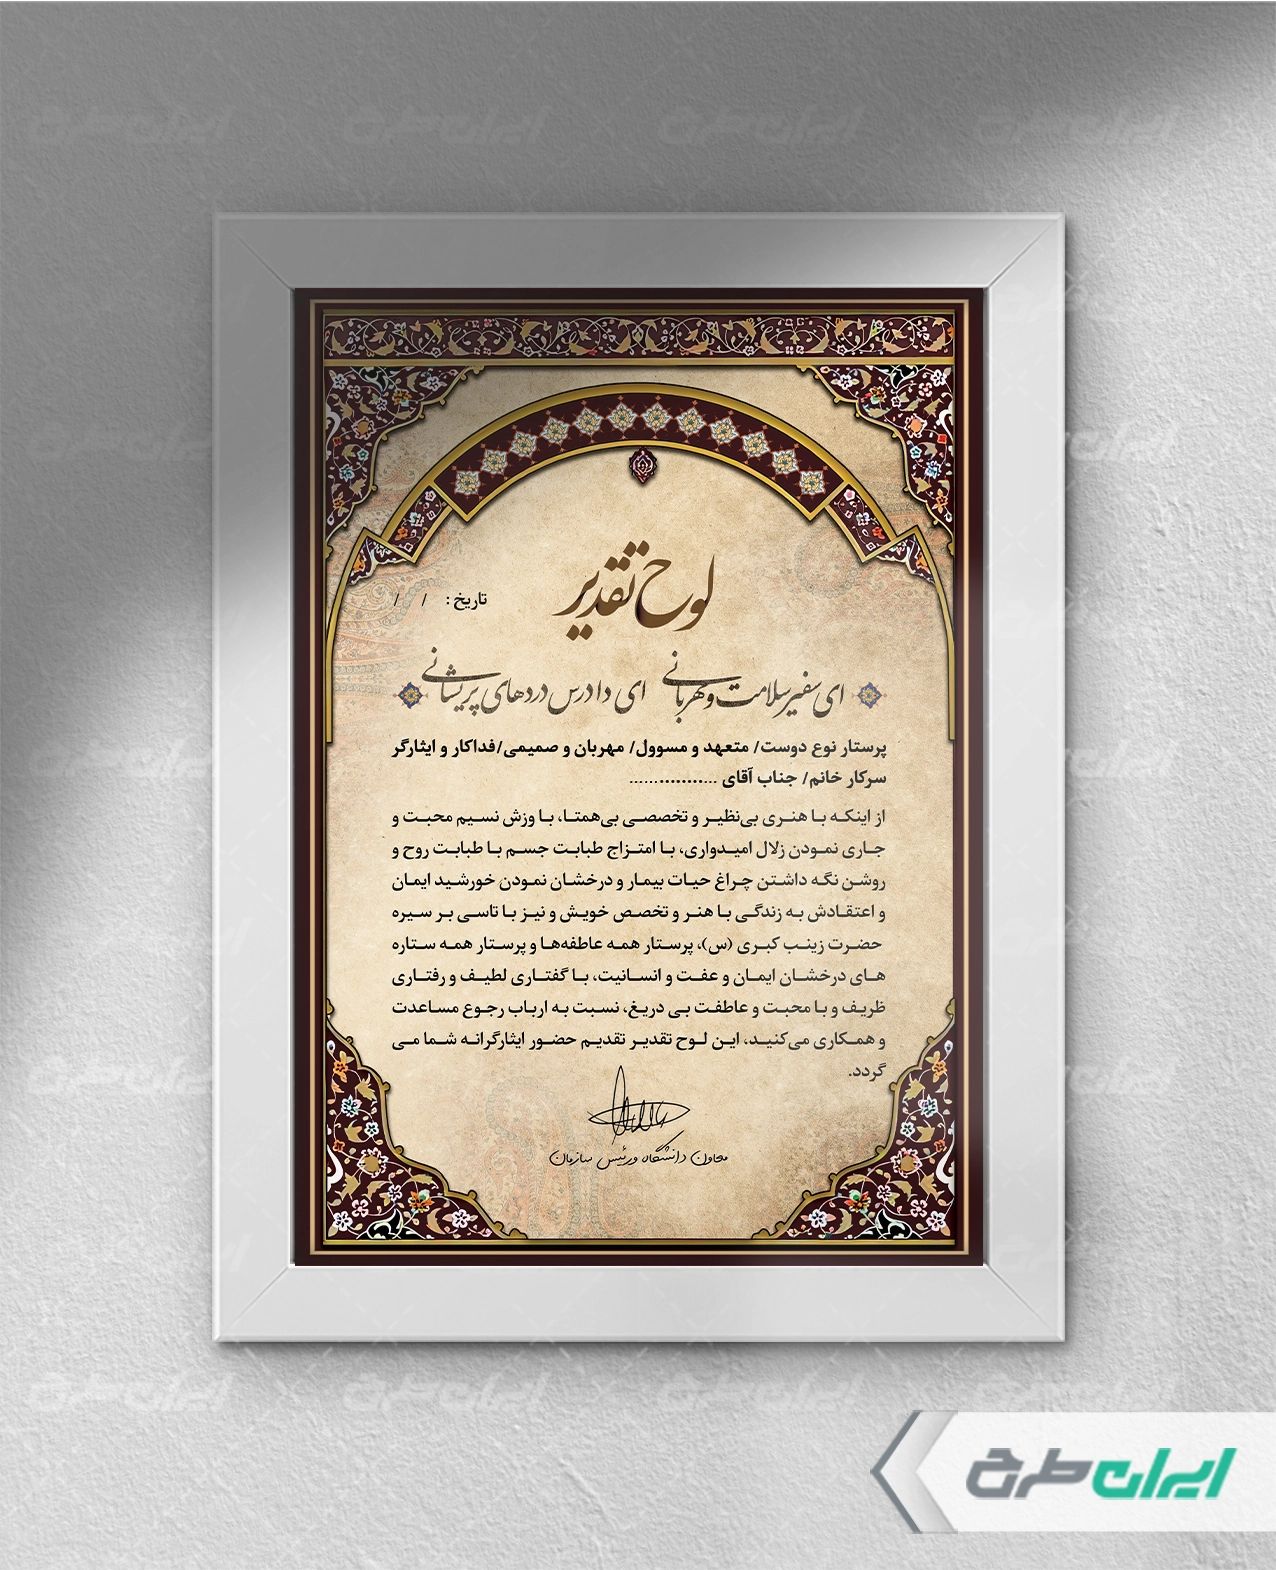 لوح تقدیر
تاریخ : / /
ای سفیر سلامت و مهربانی ای دادرس دردهای پریشانی
پرستار نوع دوست/ متعهد و مسوول/ مهربان و صمیمی/فداکار و ایثارگر
سرکار خانم/ جناب آقای ..................
از اینکه با هنری بی‌نظیر و تخصصی بی‌همتا، با وزش نسیم محبت و
جاری نمودن زلال امیدواری، با امتزاج طبابت جسم با طبابت روح و
روشن نگه داشتن چراغ حیات بیمار و درخشان نمودن خورشید ایمان
و اعتقادش به زندگی با هنر و تخصص خویش و نیز با تاسی بر سیره
حضرت زینب کبری (س)، پرستار همه عاطفه‌ها و پرستار همه ستاره
های درخشان ایمان و عفت و انسانیت، با گفتاری لطیف و رفتاری
ظریف و با محبت و عاطفت بی دریغ، نسبت به ارباب رجوع مساعدت
و همکاری می‌کنید، این لوح تقدیر تقدیم حضور ایثارگرانه شما می
گردد.
معاون دانشگاه و رئیس سازمان
ایران طرح